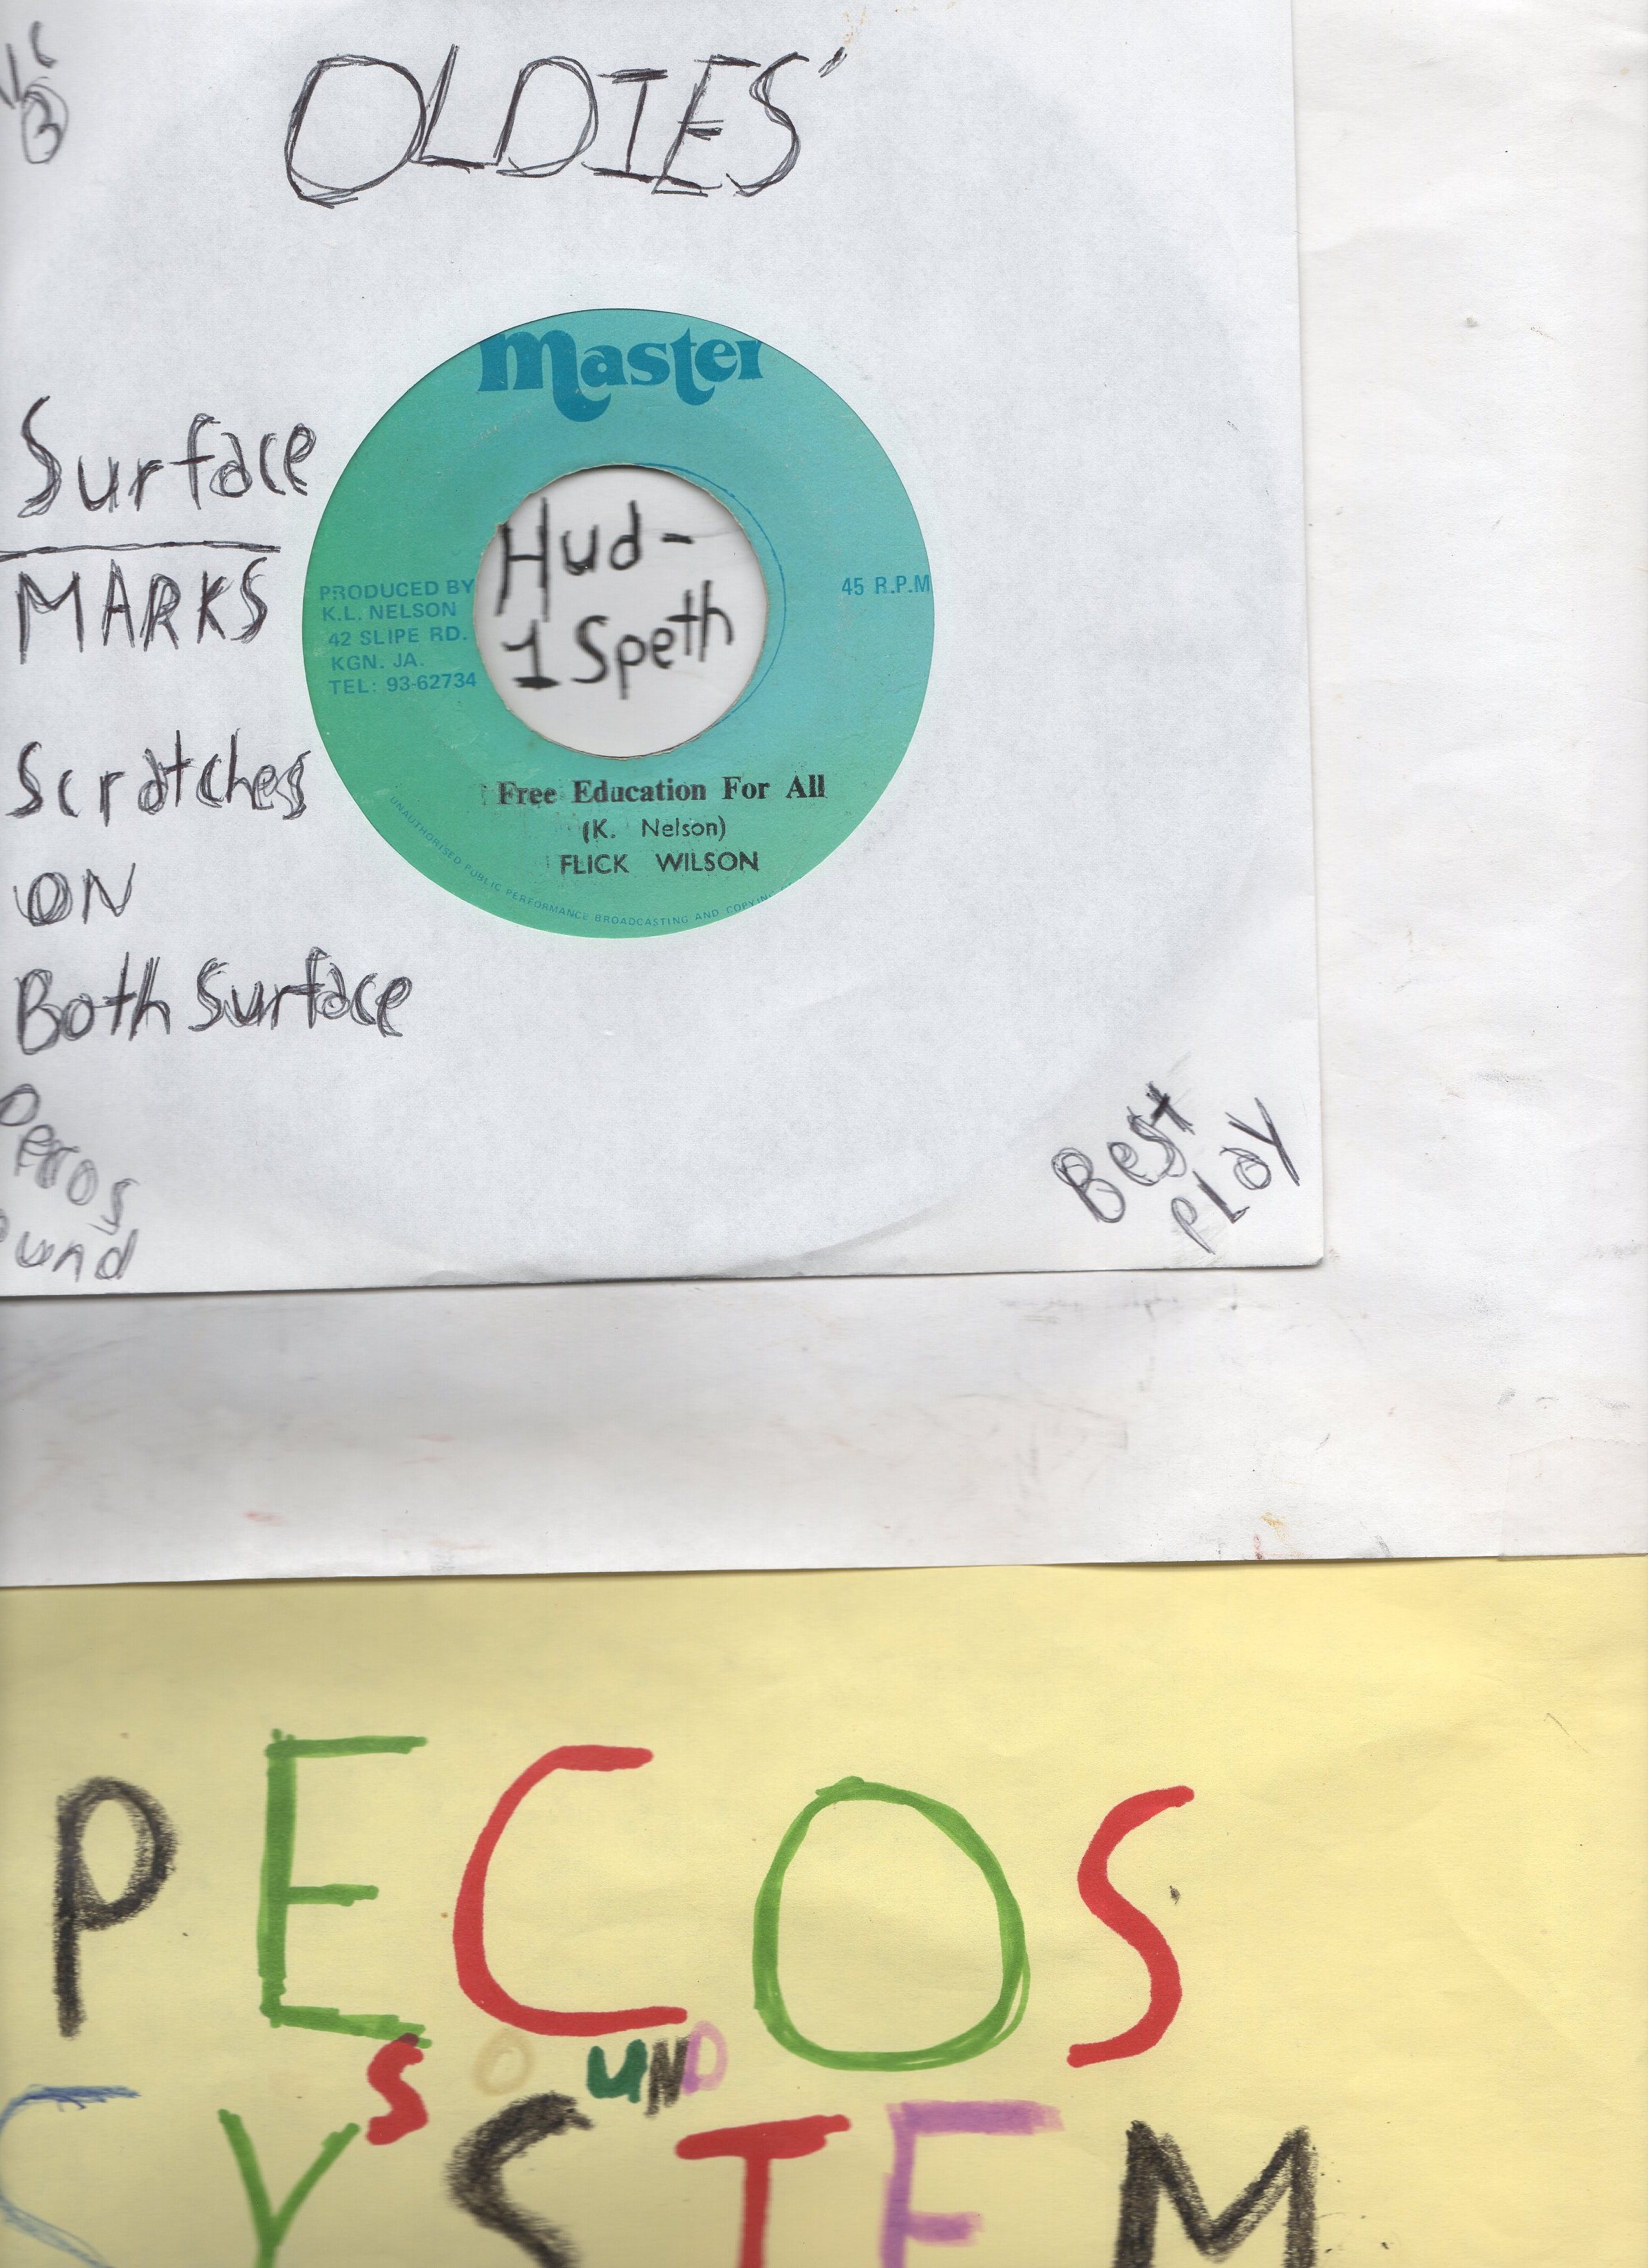 OLDIES'
master
Surface
MARKS
Scratches
ON
Both Surface
PRODUCED BY
K.L. NELSON
42 SLIPE RD.
KGN. JA.
TEL: 93-62734
Hud-
1 Speth
45 R.P.M
Free Education For All
(K. Nelson)
FLICK WILSON
UNAUTHORISED PUBLIC PERFORMANCE BROADCASTING AND COPYIN
Best
PLay
und
PECOS
SOUND
SYSTEM